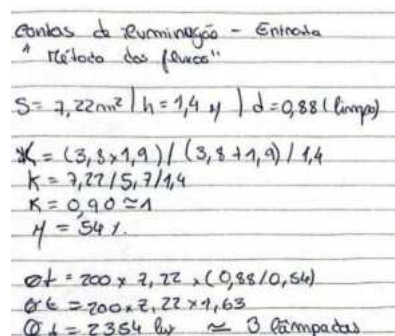 Contas de iluminação - Entrada
"Método dos fluxos"
S= 7,22m² | h= 1,4 m | d=0,88 (limpo)
K = (3,8x1,9) / (3,8+1,9) / 1,4
K = 7,22/5,7/1,4
K = 0,90 ≃ 1
μ = 54 %
Øt = 200 x 7,22 x (0,88/0,54)
Øt = 200x7,22 x 1,63
Øt = 2354 lux ≃ 3 lâmpadas